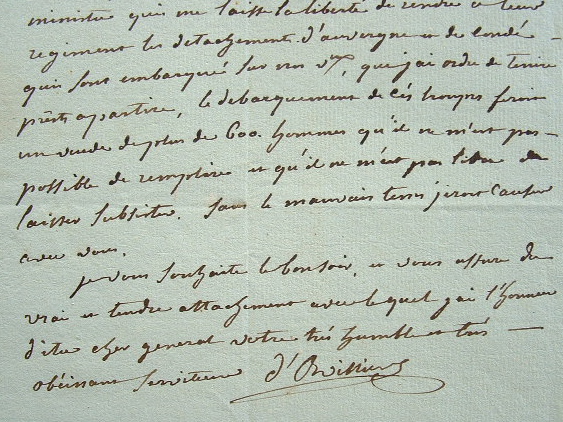 ministre qui me laisse la liberté de rendre a leur
regiment les detachement d'auvergne et de condé
qui sont embarqué sur vos vx, que j'ai ordre de tenire
prêts a partire, le debarquement de cés troupes feroit
un vuide de plus de 600. hommes qu'il ne m'est pas
possible de remplire et qu'il ne m'est pas de
laisser subsister. sans le mauvais tems j'irois causer
avec vous.
je vous souhaite le bonsoir, et vous assure du
vrai et tendre attachement avec lequel j'ai l'honneur
d'etre cher general votre trés humble et trés
obéissant serviteur d'Orvilliers